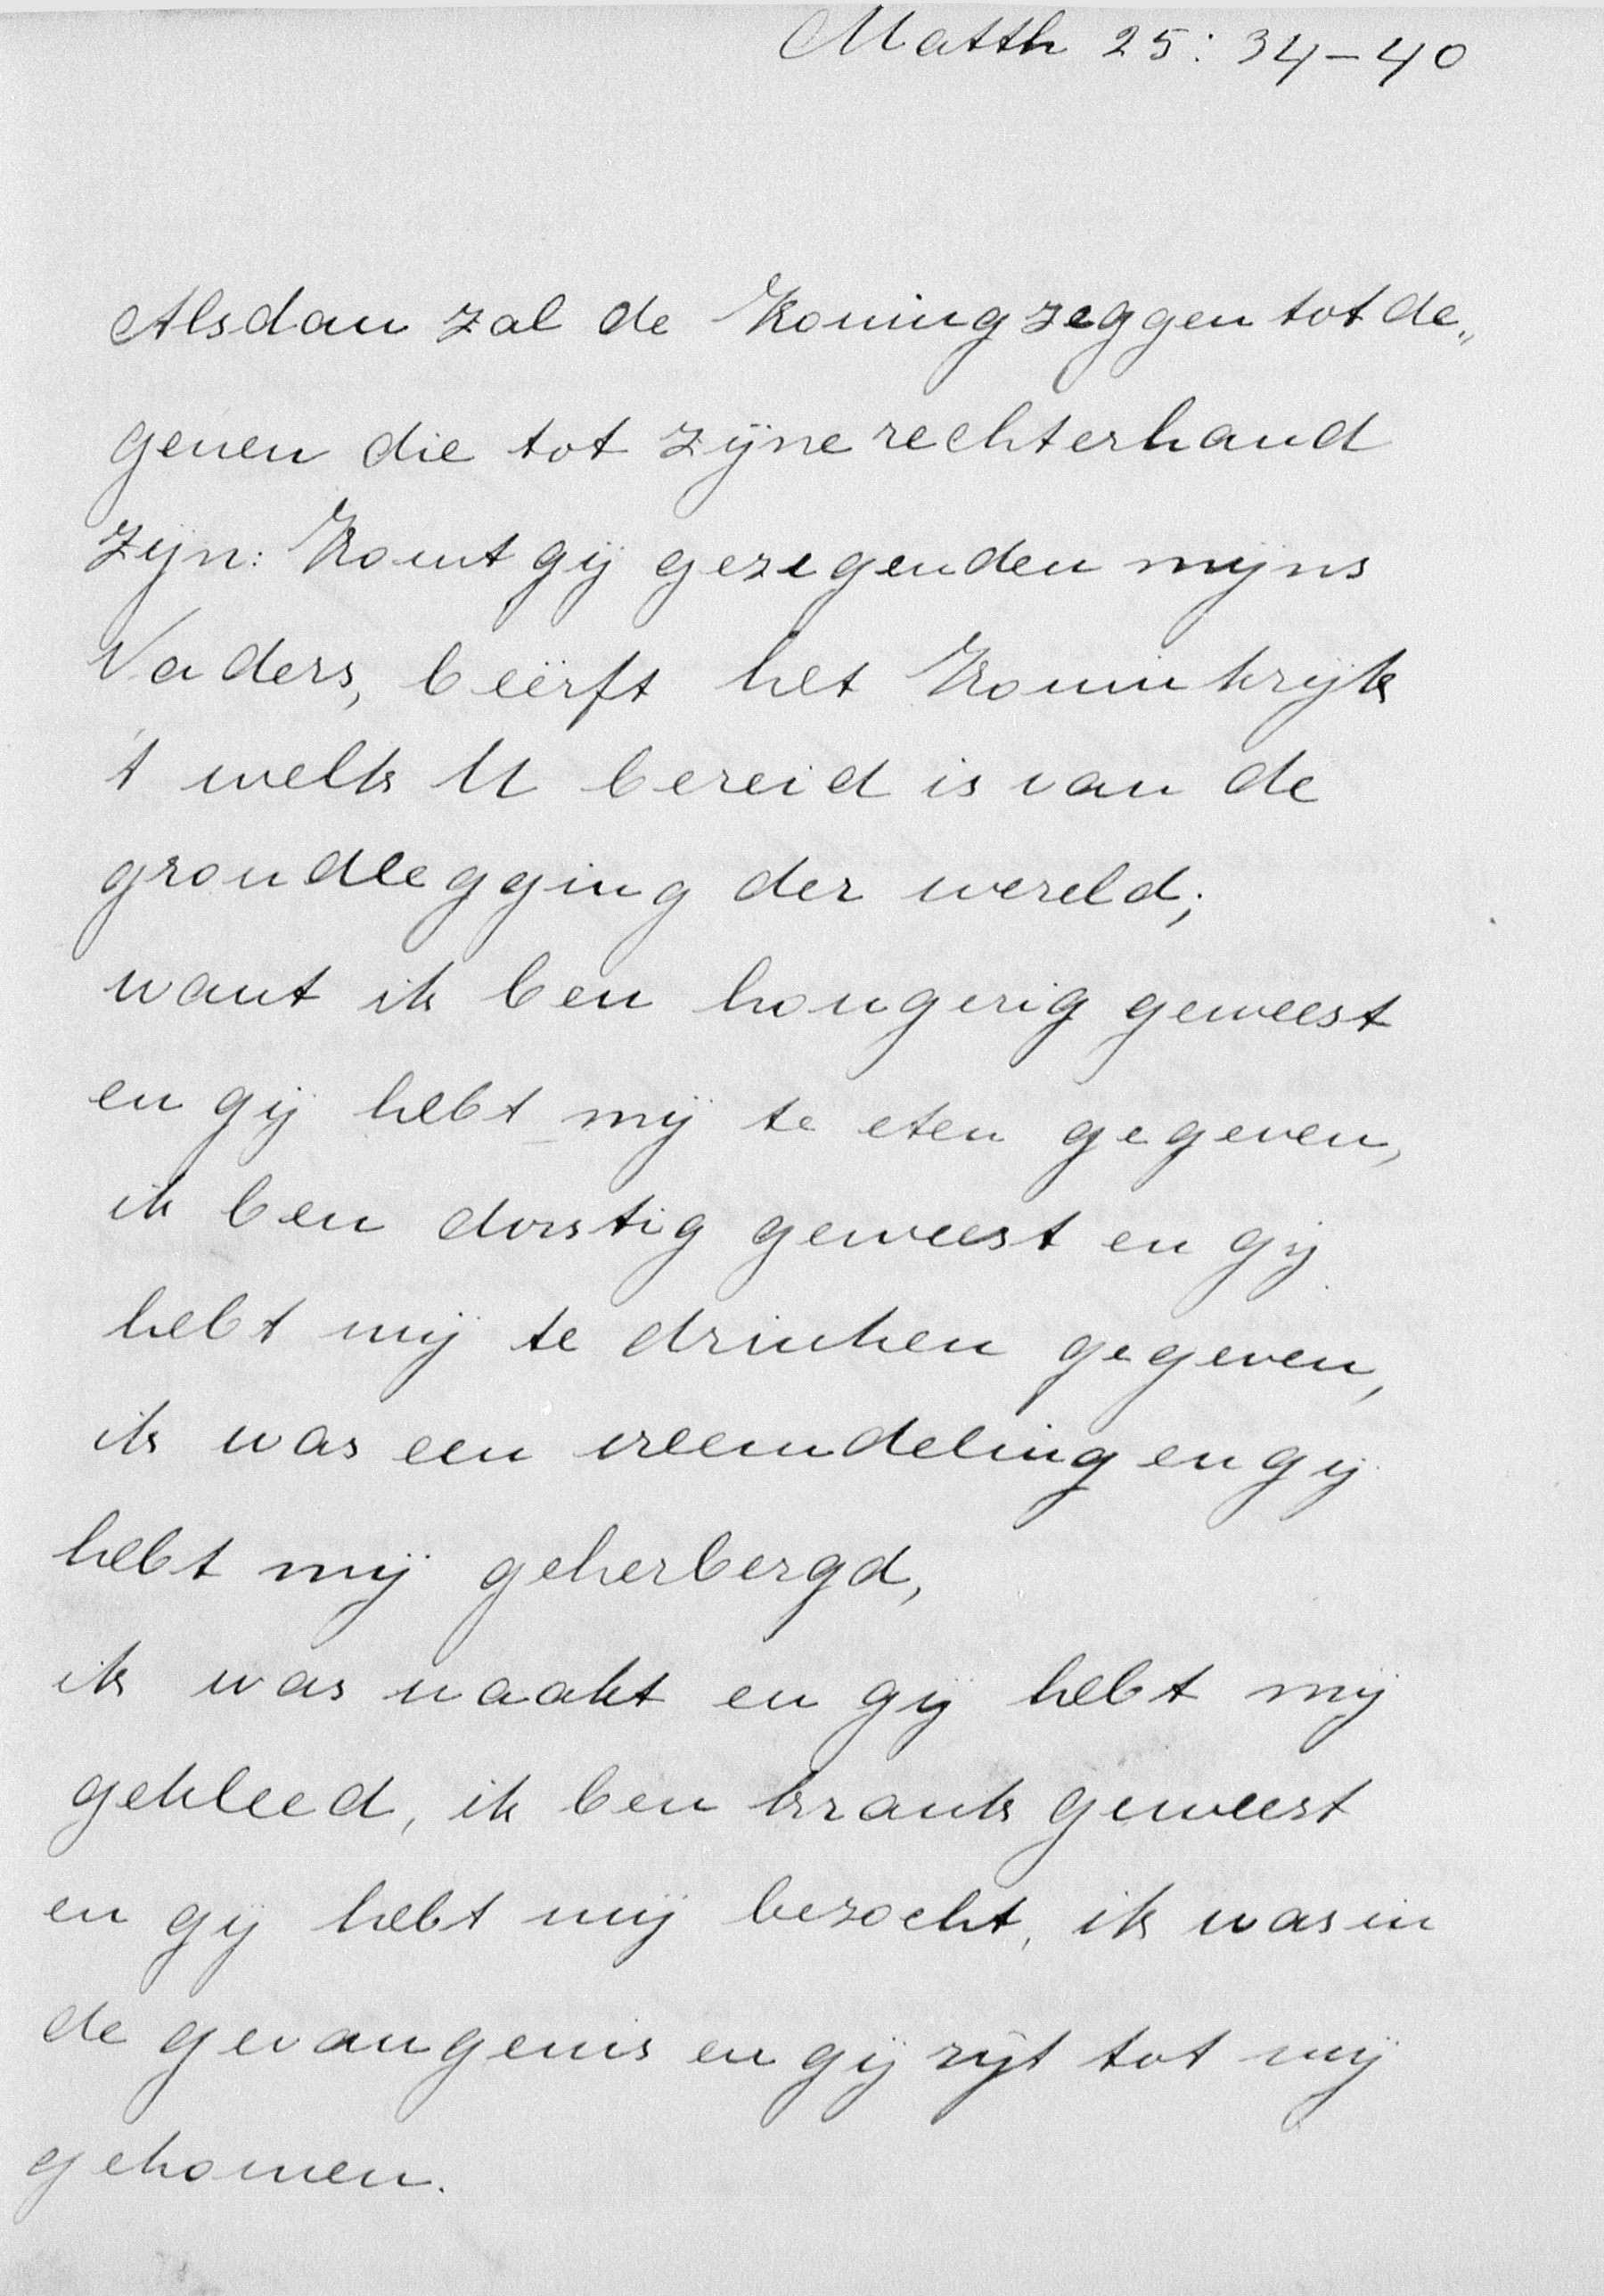 Matth 25: 34-40
Alsdan zal de Koning zeggen tot de„
genen die tot zijne rechterhand
zijn: Komt gij gezegenden mijns
Vaders, beërft het Koninkrijk
't welk U bereid is van de
grondlegging der wereld;
want ik ben hongerig geweest
en gij hebt mij te eten gegeven,
ik ben dorstig geweest en gij
hebt mij te drinken gegeven,
ik was een vreemdeling en gij
hebt mij geherbergd,
ik was naakt en gij hebt mij
gekleed, ik ben krank geweest
en gij hebt mij bezocht, ik was in
de gevangenis en gij zijt tot mij
gekomen.